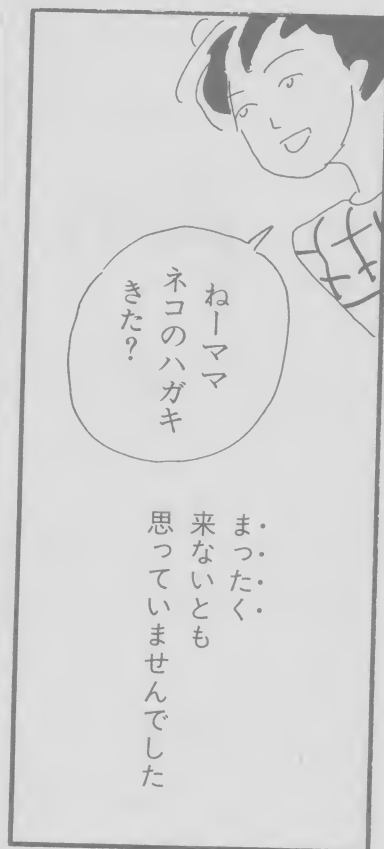 ねーママ
ネコのハガキ
きた？
まったく
来ないとも
思っていませんでした